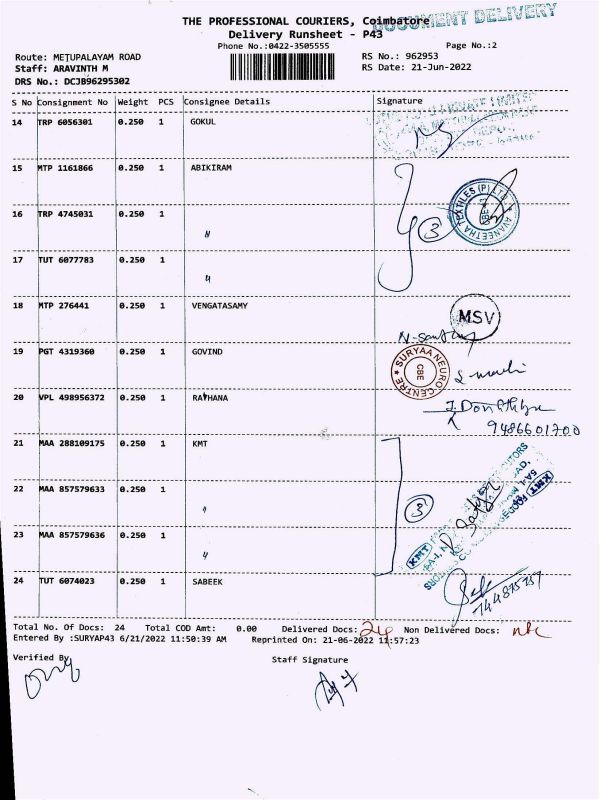 DOCUMENT DELIVERY
THE PROFESSIONAL COURIERS, Coimbatore
Delivery Runsheet - P43
Phone No.:0422-3505555
Page No.:2
Route: METUPALAYAM ROAD
RS No.: 962953
Staff: ARAVINTH M
RS Date: 21-Jun-2022
DRS No.: DCJB96295302
S No Consignment No Weight PCS Consignee Details Signature
14 TRP 6056301 0.250 1 GOKUL
15 MTP 1161866 0.250 1 ABIKIRAM
16 TRP 4745031 0.250 1 〃
3
AVANEETHA TEXTILES (P) LTD. CBE
17 TUT 6077783 0.250 1 〃
18 MTP 276441 0.250 1 VENGATASAMY
MSV
19 PGT 4319360 0.250 1 GOVIND
SURYAA NEURO CENTRE CBE
20 VPL 498956372 0.250 1 RATHANA
9486601700
21 MAA 288109175 0.250 1 KMT
22 MAA 857579633 0.250 1 〃
3
KMT
23 MAA 857579636 0.250 1 〃
KMT
24 TUT 6074023 0.250 1 SABEEK
Total No. Of Docs: 24 Total COD Amt: 0.00 Delivered Docs: 24 Non Delivered Docs:
Entered By :SURYAP43 6/21/2022 11:50:39 AM Reprinted On: 21-06-2022 11:57:23
Verified By
Staff Signature